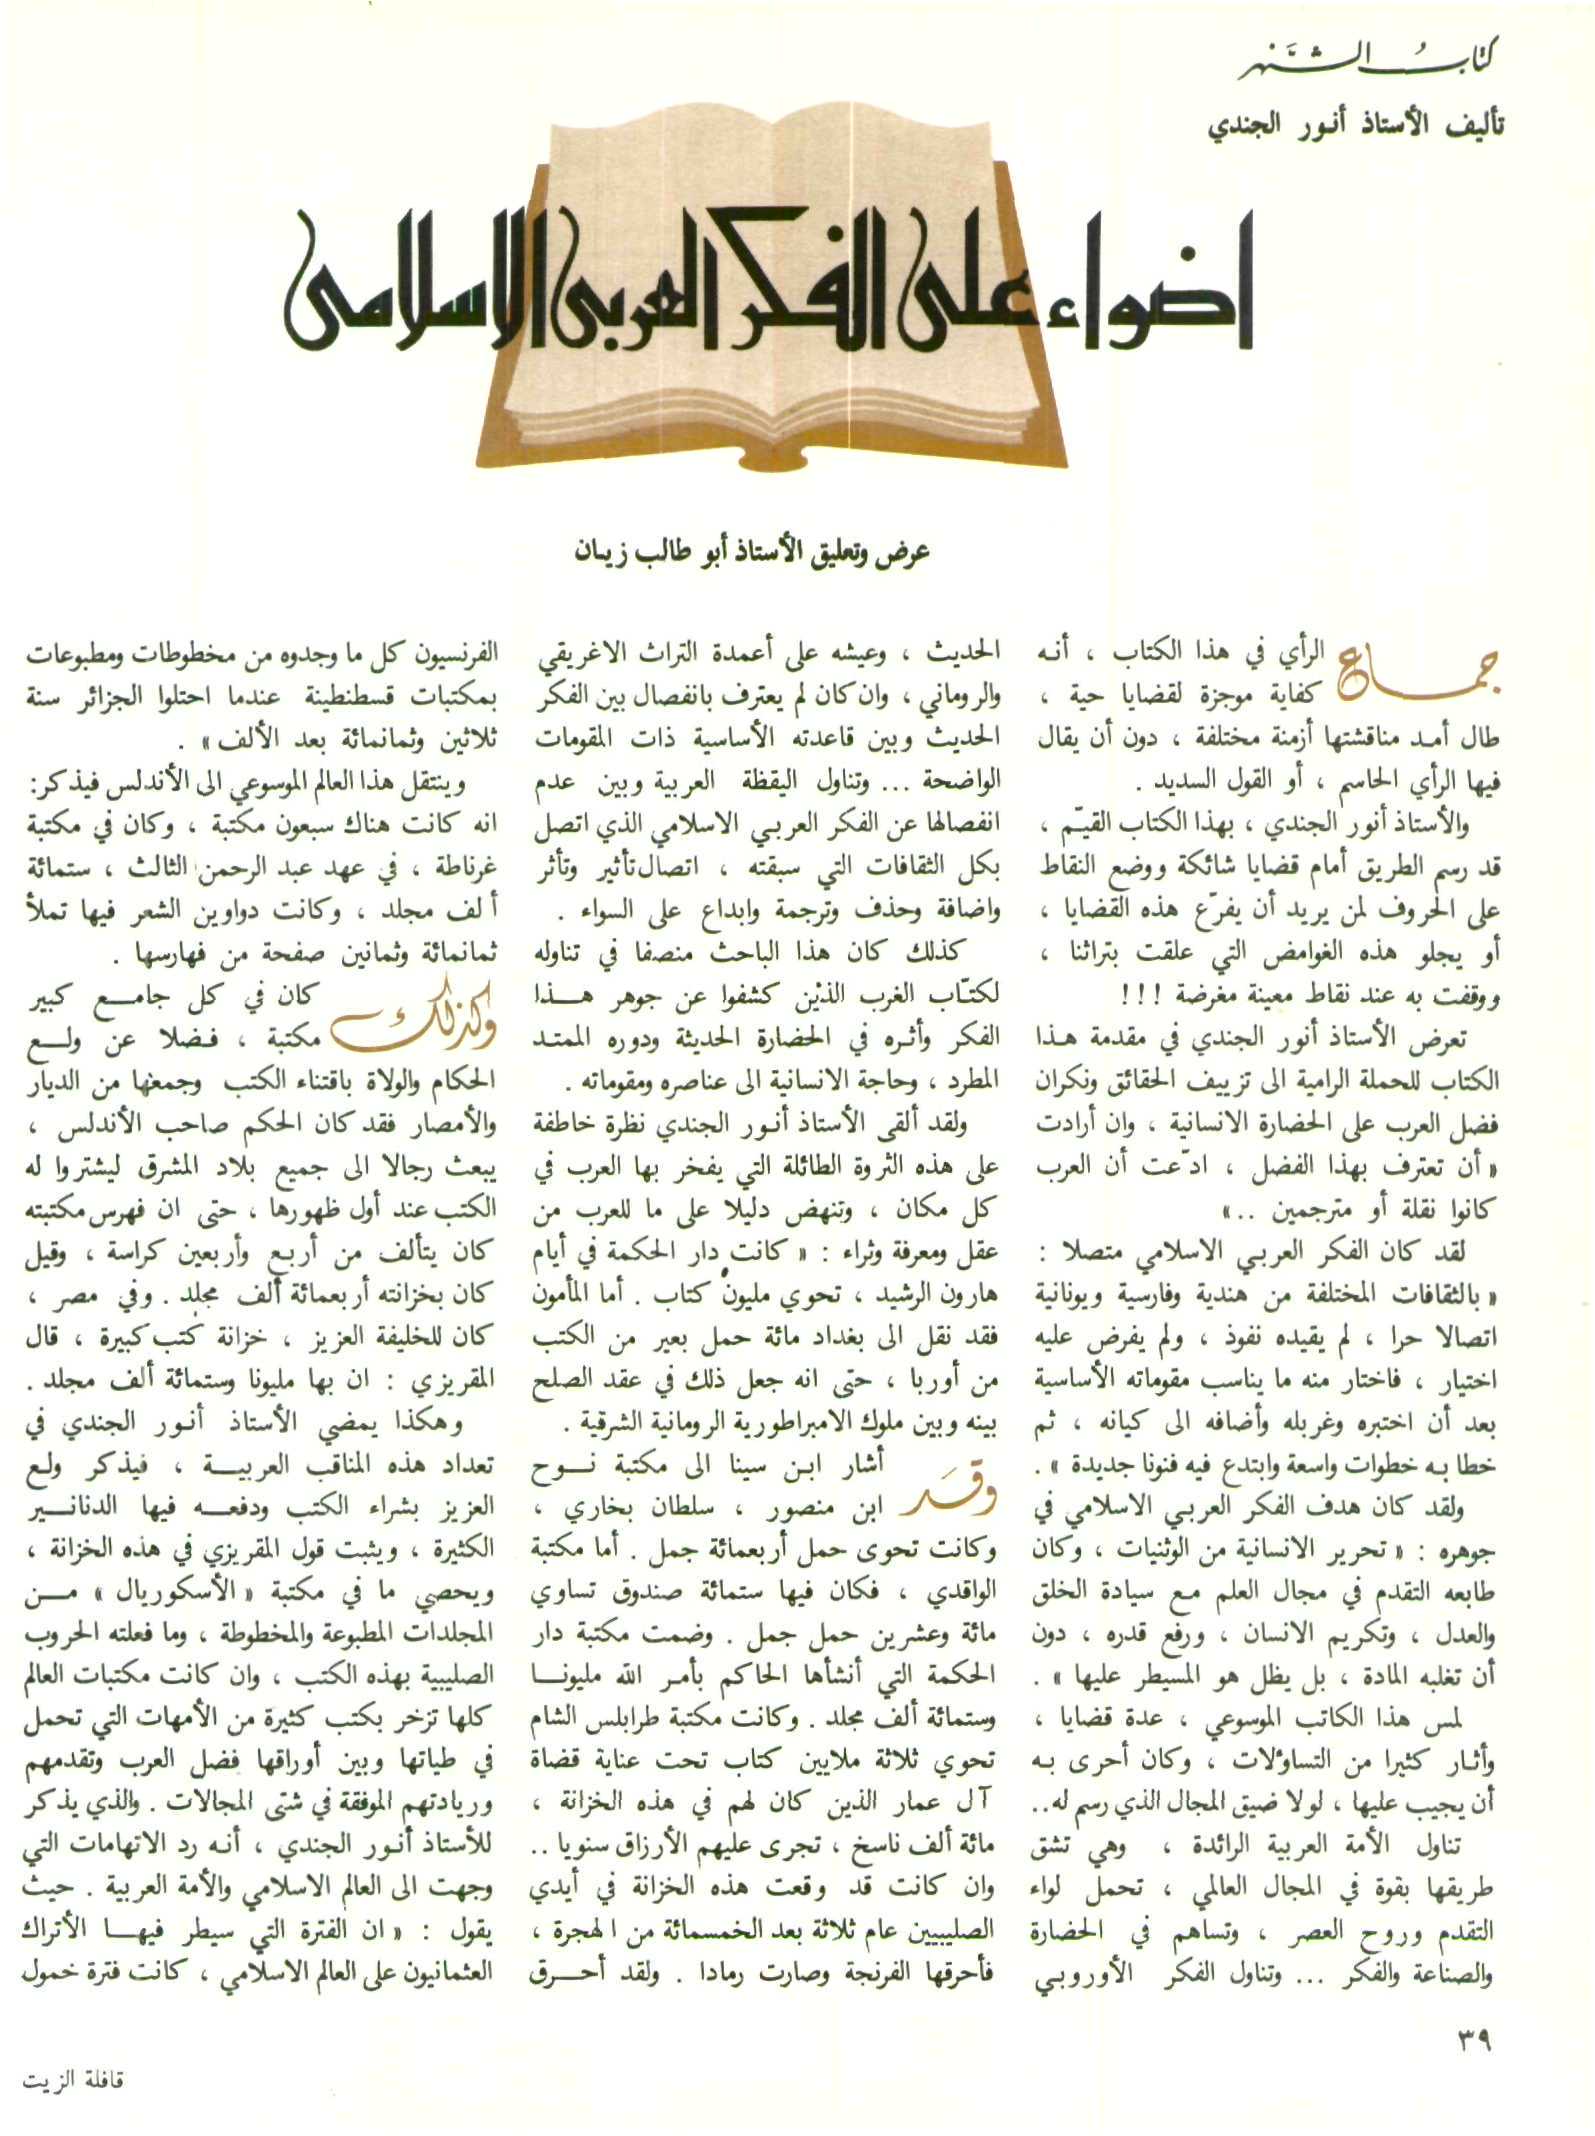 كتاب الشهر
تأليف الأستاذ أنور الجندي
اضواء على الفكر العربى الاسلامى
عرض وتعليق الأستاذ أبو طالب زيـان
جماع الرأي في هذا الكتاب ، أنـه
كفاية موجزة لقضايا حية ،
طال أمـد مناقشتها أزمنة مختلفة ، دون أن يقال
فيها الرأي الحاسم ، أو القول السديد .
والأستاذ أنور الجندي ، بهذا الكتاب القيـّم ،
قد رسم الطريق أمام قضايا شائكة ووضع النقاط
على الحروف لمن يريد أن يفرّع هذه القضايا ،
أو يجلو هذه الغوامض التي علقت بتراثنا ،
ووقفت به عند نقاط معينة مغرضة !!!
تعرض الأستاذ أنور الجندي في مقدمة هـذا
الكتاب للحملة الرامية الى تزييف الحقائق ونكران
فضل العرب على الحضارة الانسانية ، وان أرادت
« أن تعترف بهذا الفضل ، ادّعت أن العرب
كانوا نقلة أو مترجمين ..»
لقد كان الفكر العربـي الاسلامي متصلا :
« بالثقافات المختلفة من هندية وفارسية ويونانية
اتصالا حرا ، لم يقيده نفوذ ، ولم يفرض عليه
اختيار ، فاختار منه ما يناسب مقوماته الأساسية
بعد أن اختبره وغربله وأضافه الى كيانه ، ثم
خطا بـه خطوات واسعة وابتدع فيه فنونا جديدة » .
ولقد كان هدف الفكر العربـي الاسلامي في
جوهره : « تحرير الانسانية من الوثنيات ، وكان
طابعه التقدم في مجال العلم مـع سيادة الخلق
والعدل ، وتكريم الانسان ، ورفع قدره ، دون
أن تغلبه المادة ، بل يظل هو المسيطر عليها » .
لمس هذا الكاتب الموسوعي ، عدة قضايا ،
وأثـار كثيرا من التساؤلات ، وكان أحرى بـه
أن يجيب عليها ، لولا ضيق المجال الذي رسم له..
تناول الأمة العربية الرائدة ، وهي تشق
طريقها بقوة في المجال العالمي ، تحمل لواء
التقدم وروح العصر ، وتساهم في الحضارة
والصناعة والفكر ... وتناول الفكر الأوروبـي
الحديث ، وعيشه على أعمدة التراث الاغريقي
والروماني ، وان كان لم يعترف بانفصال بين الفكر
الحديث وبين قاعدته الأساسية ذات المقومات
الواضحة ... وتناول اليقظة العربية وبين عدم
انفصالها عن الفكر العربـي الاسلامي الذي اتصل
بكل الثقافات التي سبقته ، اتصال تأثير وتأثر
واضافة وحذف وترجمة وابداع على السواء .
كذلك كان هذا الباحث منصفا في تناوله
لكتـّاب الغرب الذين كشفوا عن جوهر هـــذا
الفكر وأثـره في الحضارة الحديثة ودوره الممتـد
المطرد ، وحاجة الانسانية الى عناصره ومقوماته .
ولقد ألقى الأستاذ أنـور الجندي نظرة خاطفة
على هذه الثروة الطائلة التي يفخر بها العرب في
كل مكان ، وتنهض دليلا على ما للعرب من
عقل ومعرفة وثراء : « كانت دار الحكمة في أيام
هارون الرشيد ، تحوي مليون كتاب . أما المأمون
فقد نقل الى بغداد مائة حمل بعير من الكتب
من أوربا ، حتى انه جعل ذلك في عقد الصلح
بينه وبين ملوك الامبراطورية الرومانية الشرقية .
وقد أشار ابـن سينا الى مكتبة نـــوح
ابن منصور ، سلطان بخاري ،
وكانت تحوى حمل أربعمائة جمل . أما مكتبة
الواقدي ، فكان فيها ستمائة صندوق تساوي
مائة وعشرين حمل جمل . وضمت مكتبة دار
الحكمة التي أنشأها الحاكم بأمـر الله مليونــا
وستمائة ألف مجلد . وكانت مكتبة طرابلس الشام
تحوي ثلاثة ملايين كتاب تحت عناية قضاة
آل عمار الذين كان لهم في هذه الخزانة ،
مائة ألف ناسخ ، تجرى عليهم الأرزاق سنويا ..
وان كانت قد وقعت هذه الخزانة في أيدي
الصليبيين عام ثلاثة بعد الخمسمائة من الهجرة ،
فأحرقها الفرنجة وصارت رمادا . ولقد أحـــرق
الفرنسيون كل ما وجدوه من مخطوطات ومطبوعات
بمكتبات قسطنطينة عندما احتلوا الجزائر سنة
ثلاثين وثمانمائة بعد الألف» .
وينتقل هذا العالم الموسوعي الى الأندلس فيذكر:
انه كانت هناك سبعون مكتبة ، وكان في مكتبة
غرناطة ، في عهد عبد الرحمن الثالث ، ستمائة
ألف مجلد ، وكانت دواوين الشعر فيها تملأ
ثمانمائة وثمانين صفحة من فهارسها .
وكذلك كان في كل جامـــع كبير
مكتبة ، فـضلا عن ولـــع
الحكام والولاة باقتناء الكتب وجمعها من الديار
والأمصار فقد كان الحكم صاحب الأندلس ،
يبعث رجالا الى جميع بلاد المشرق ليشتروا له
الكتب عند أول ظهورها ، حتى ان فهرس مكتبته
كان يتألف من أربـع وأربعين كراسة ، وقيل
كان بخزانته أربعمائة ألف مجلد . وفي مصر ،
كان للخليفة العزيز ، خزانة كتب كبيرة ، قال
المقريزي : ان بها مليونا وستمائة ألف مجلد .
وهكذا يمضي الأستاذ أنـور الجندي في
تعداد هذه المناقب العربيـــة ، فيذكر ولـع
العزيز بشراء الكتب ودفعـــه فيها الدنانـــير
الكثيرة ، ويثبت قول المقريزي في هذه الخزانة ،
ويحصي ما في مكتبة « الأسكوريال » مـــن
المجلدات المطبوعة والمخطوطة ، وما فعلته الحروب
الصليبية بهذه الكتب ، وان كانت مكتبات العالم
كلها تزخر بكتب كثيرة من الأمهات التي تحمل
في طياتها وبين أوراقها فضل العرب وتقدمهم
وريادتهم الموفقة في شتى المجالات . والذي يذكر
للأستاذ أنـور الجندي ، أنـه رد الاتهامات التي
وجهت الى العالم الاسلامي والأمة العربية . حيث
يقول : « ان الفترة التي سيطر فيهـــا الأتراك
العثمانيون على العالم الاسلامي ، كانت فترة خمول
٣٩
قافلة الزيت